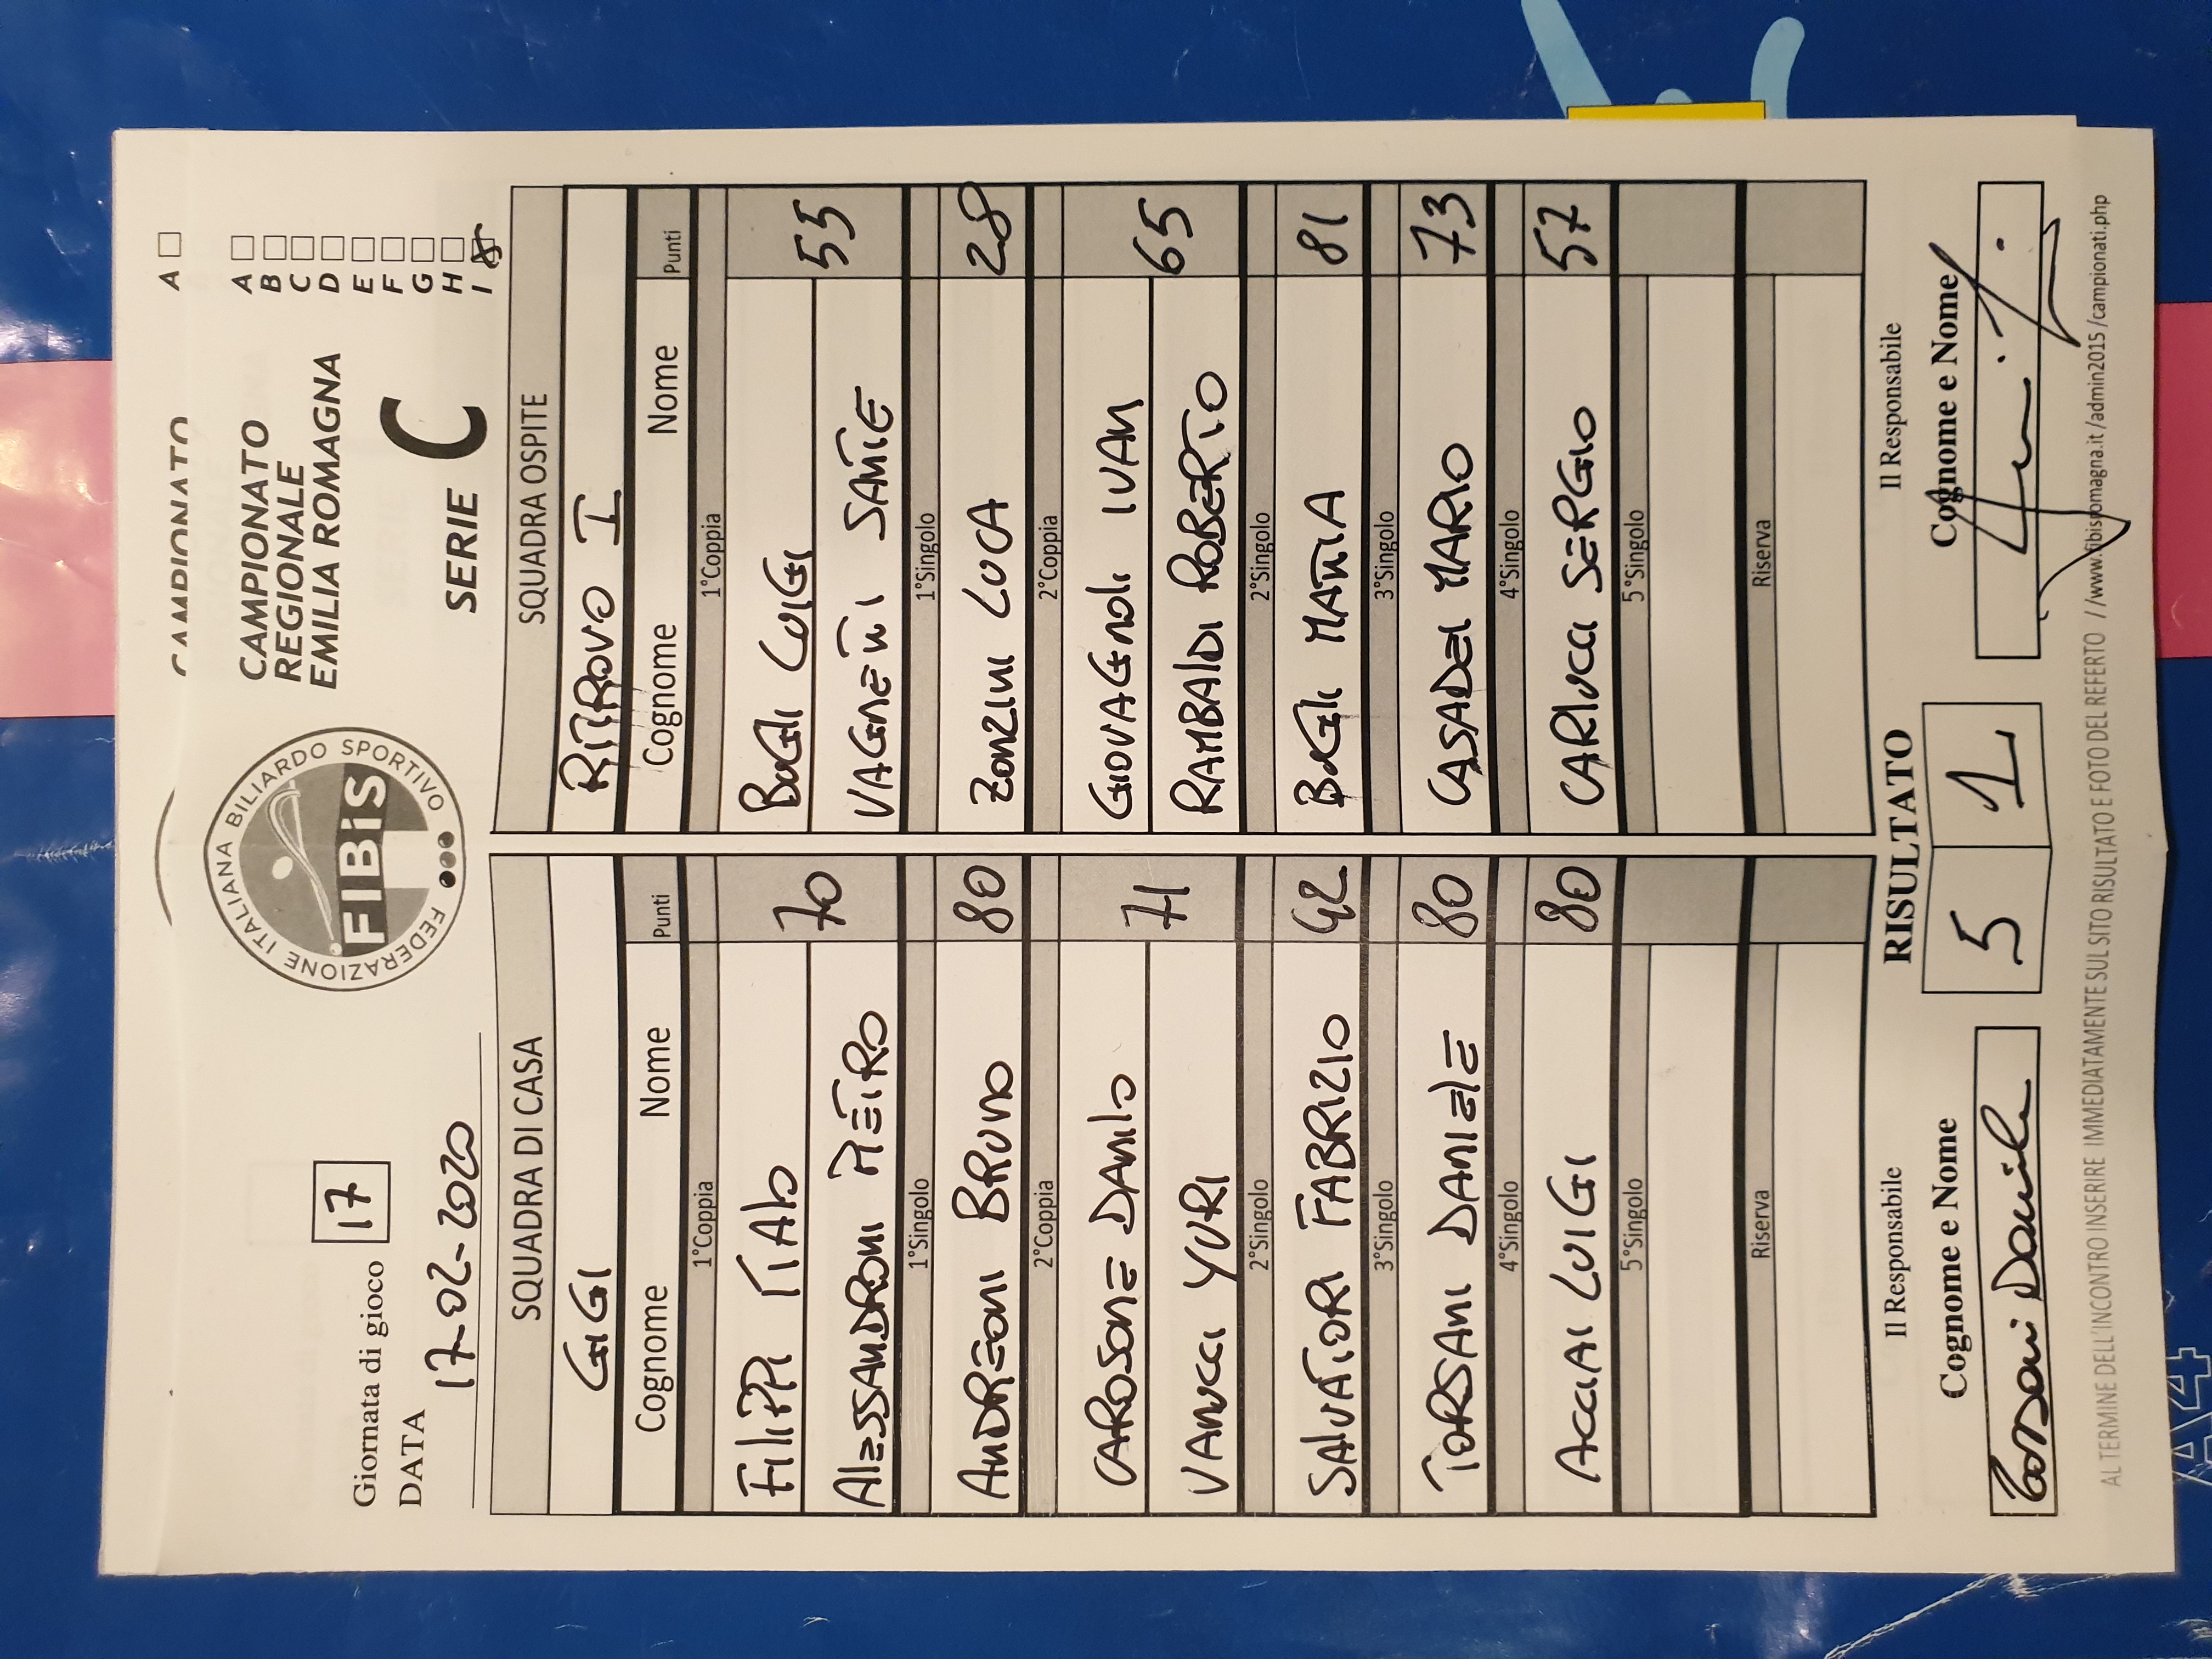 CAMPIONATO
A □
Giornata di gioco 17
DATA
17-02-2020
FEDERAZIONE ITALIANA BILIARDO SPORTIVO
FIBiS
CAMPIONATO
REGIONALE
EMILIA ROMAGNA
SERIE C
A □
B □
C □
D □
E □
F □
G □
H □
I ☒
SQUADRA DI CASA
GIGI
Cognome Nome Punti
1°Coppia
FILIPPI ITALO 70
ALESSANDRONI PIETRO
1°Singolo
ANDREONI BRUNO 80
2°Coppia
CAROSONE DANILO 71
VANUCCI YURI
2°Singolo
SALVATORI FABRIZIO 42
3°Singolo
TORSANI DANIELE 80
4°Singolo
ACCIAI LUIGI 80
5°Singolo
Riserva
SQUADRA OSPITE
RITROVO I
Cognome Nome Punti
1°Coppia
BAGLI LUIGI 55
VAGNETTI SANTE
1°Singolo
ZONZINI LUCA 28
2°Coppia
GIOVAGNOLI IVAN 65
RAMBALDI ROBERTO
2°Singolo
BAGLI MATTIA 81
3°Singolo
CASADEI MARIO 73
4°Singolo
CARLUCCI SERGIO 57
5°Singolo
Riserva
Il Responsabile
Cognome e Nome
Torsani Daniele
RISULTATO
5 1
Il Responsabile
Cognome e Nome
AL TERMINE DELL'INCONTRO INSERIRE IMMEDIATAMENTE SUL SITO RISULTATO E FOTO DEL REFERTO //www.fibisromagna.it/admin2015/campionati.php
A4